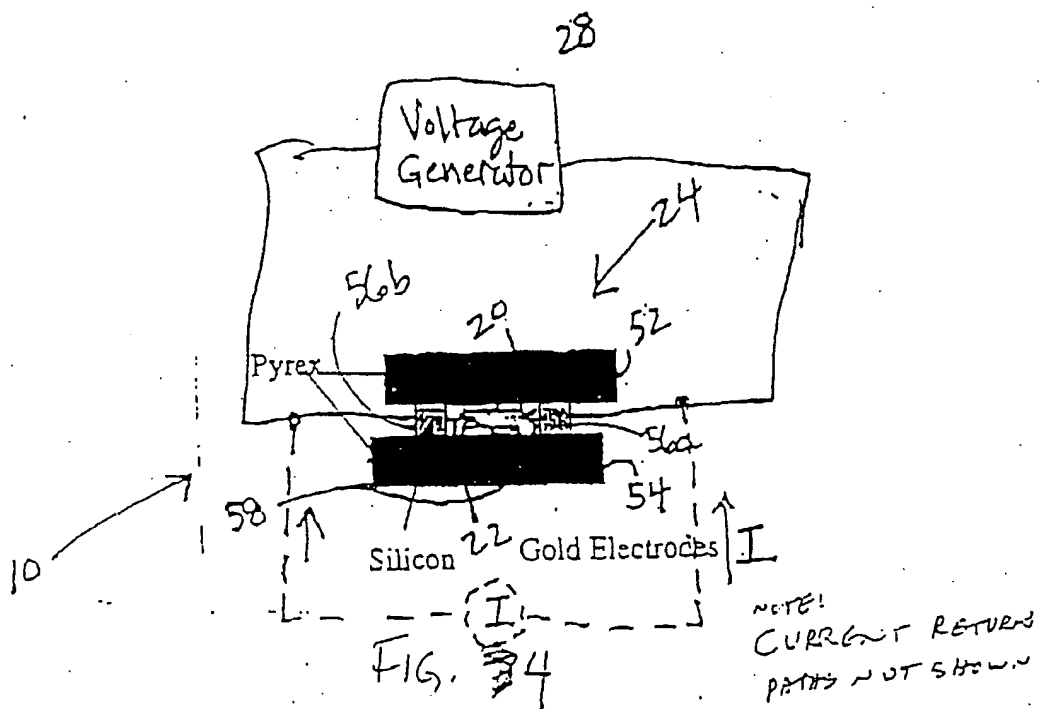 28
Voltage
Generator
24
56b
20
52
Pyrex
56a
58
54
10
Silicon 22 Gold Electrodes I
I
FIG. 4
NOTE!
CURRENT RETURN
PATHS NOT SHOWN